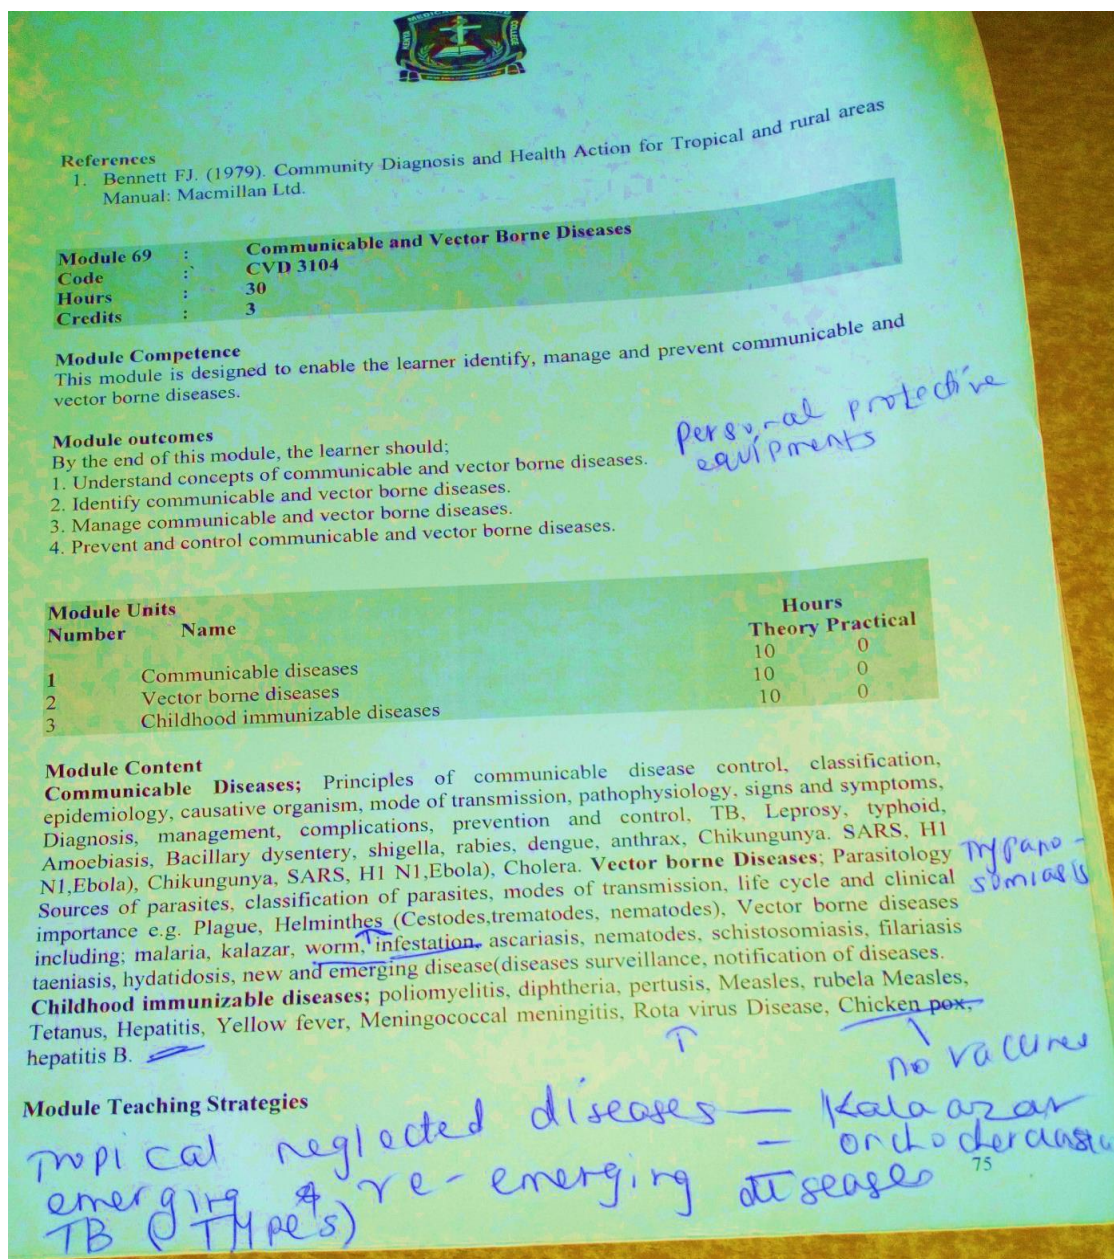 COLLEGE
References
1. Bennett FJ. (1979). Community Diagnosis and Health Action for Tropical and rural areas
Manual: Macmillan Ltd.
Module 69 : Communicable and Vector Borne Diseases
Code : CVD 3104
Hours : 30
Credits : 3
Module Competence
This module is designed to enable the learner identify, manage and prevent communicable and
vector borne diseases.
Module outcomes
By the end of this module, the learner should;
1. Understand concepts of communicable and vector borne diseases.
2. Identify communicable and vector borne diseases.
3. Manage communicable and vector borne diseases.
4. Prevent and control communicable and vector borne diseases.
personal protective
equipments
Module Units Hours
Number Name Theory Practical
1 Communicable diseases 10 0
2 Vector borne diseases 10 0
3 Childhood immunizable diseases 10 0
Module Content
Communicable Diseases; Principles of communicable disease control, classification,
epidemiology, causative organism, mode of transmission, pathophysiology, signs and symptoms,
Diagnosis, management, complications, prevention and control, TB, Leprosy, typhoid,
Amoebiasis, Bacillary dysentery, shigella, rabies, dengue, anthrax, Chikungunya. SARS, H1
N1,Ebola), Chikungunya, SARS, H1 N1,Ebola), Cholera. Vector borne Diseases; Parasitology
Sources of parasites, classification of parasites, modes of transmission, life cycle and clinical
importance e.g. Plague, Helminthes (Cestodes,trematodes, nematodes), Vector borne diseases
including; malaria, kalazar, worm, infestation, ascariasis, nematodes, schistosomiasis, filariasis
taeniasis, hydatidosis, new and emerging disease(diseases surveillance, notification of diseases.
Childhood immunizable diseases; poliomyelitis, diphtheria, pertusis, Measles, rubela Measles,
Tetanus, Hepatitis, Yellow fever, Meningococcal meningitis, Rota virus Disease, Chicken pox,
hepatitis B.
Trypano-
somiasis
no vaccines
Module Teaching Strategies
Tropical neglected diseases — Kala azar
—
emerging & re-emerging diseases
TB (Types)
75